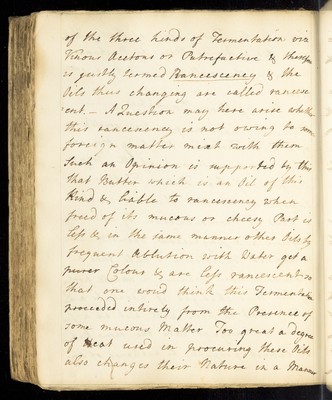 of the three kinds of Fermentation viz
Vinous Acetous or Putrefactive & therefore
is justly termed Rancescency & the
Oils thus changing are called rancesc
ent. – A Question may here arise whether
this rancescency is not owing to some
foreign matter mixt with them
Such an Opinion is supported by this
that Butter which is an Oil of this
Kind & liable to rancescency when
freed of its mucous or cheesy Part is
less & in the same manner other Oils by
frequent Ablution with Water get a
purer Colour & are less rancescent so
that one woud think this Fermentation
proceeded intirely from the Presence of
some mucous Matter Too great a degree
of Heat used in procuring these Oils
also changes their Nature in a Manner